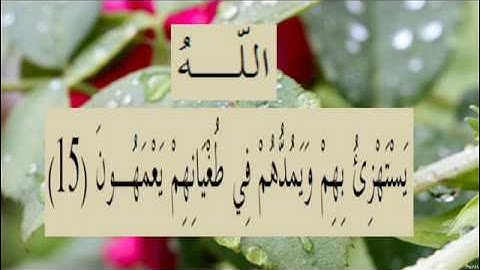 اللّـــهُ
يَسْتَهْزِئُ بِهِمْ وَيَمُدُّهُمْ فِي طُغْيَانِهِمْ يَعْمَهُـــونَ (15)